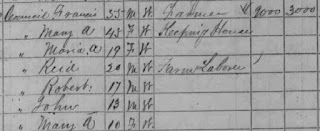 Council Francis 55 M W Farmer 9000 3000
" Mary A 45 F W Keeping House
" Maria A 19 F W
" Reid 20 M W Farm Laborer
" Robert 17 M W
" John 13 M W
" Mary A 10 F W